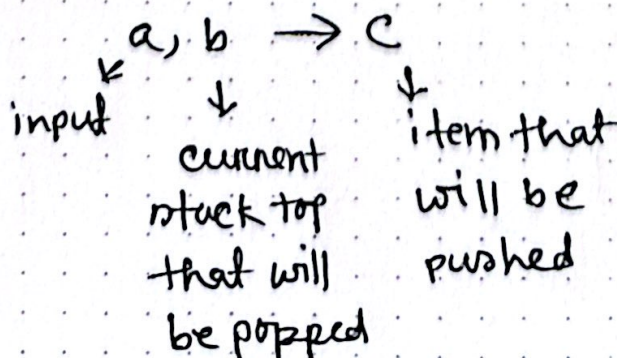 a, b → c
input
current
stack top
that will
be popped
item that
will be
pushed